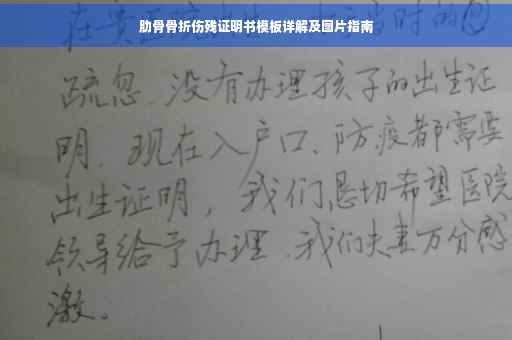 肋骨骨折伤残证明书模板详解及图片指南
疏忽、没有办理孩子的出生证
明、现在入户口、防疫都需要
出生证明，我们恳切希望医院
领导给予办理、我们夫妻万分感
激。